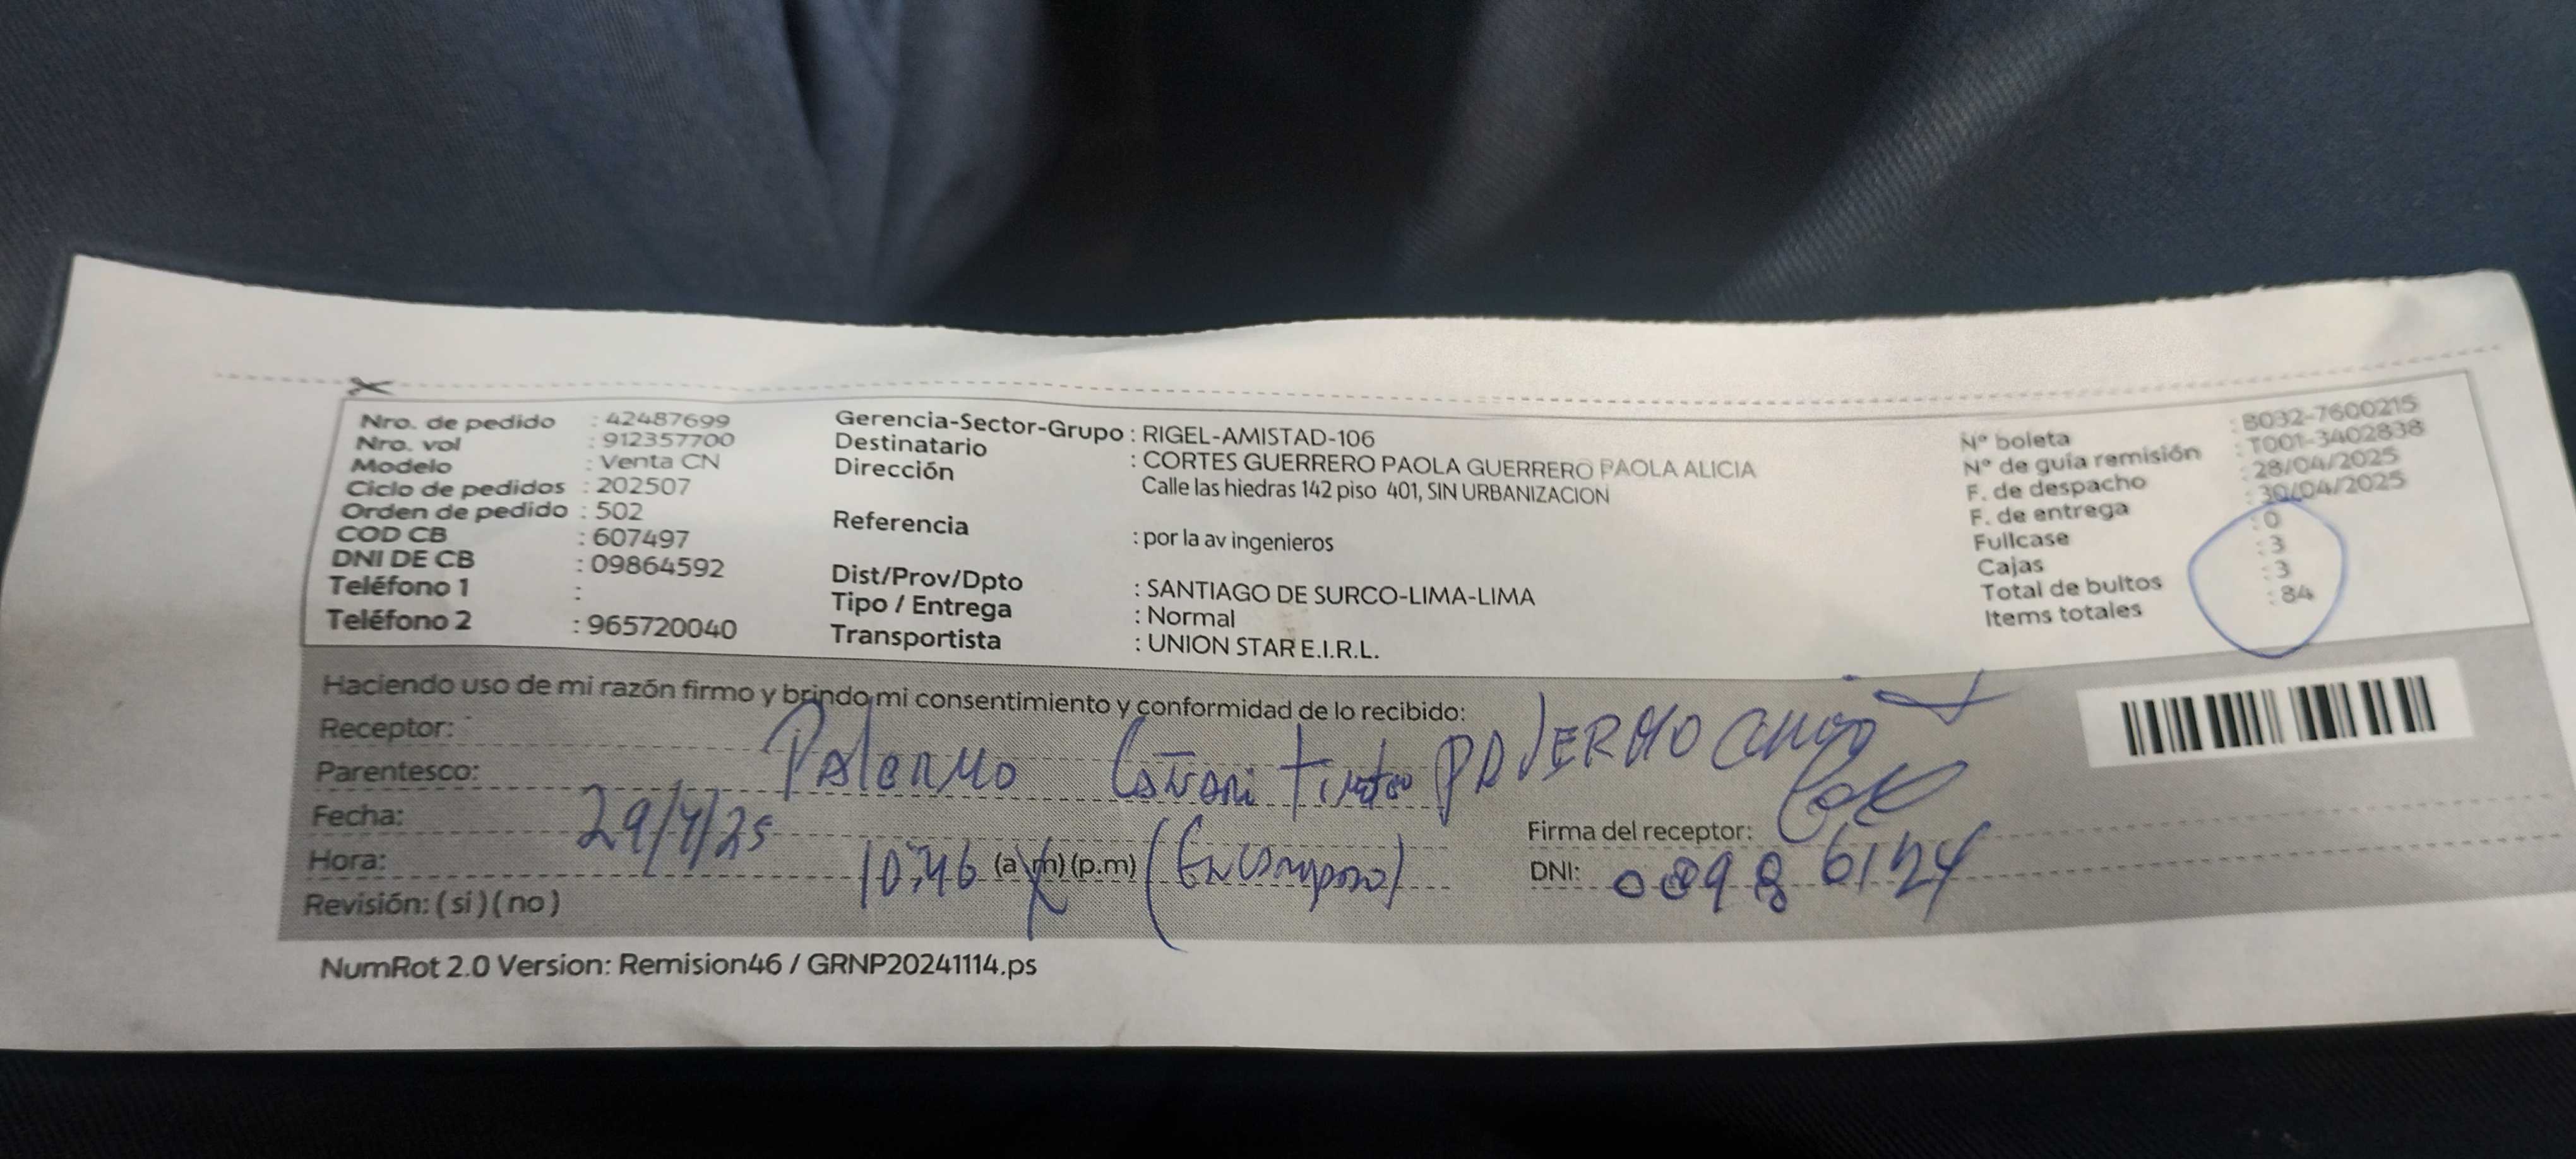 Nro. de pedido : 42487699
Nro. vol : 912357700
Modelo : Venta CN
Ciclo de pedidos : 202507
Orden de pedido : 502
COD CB : 607497
DNI DE CB : 09864592
Teléfono 1 :
Teléfono 2 : 965720040
Gerencia-Sector-Grupo : RIGEL-AMISTAD-106
Destinatario : CORTES GUERRERO PAOLA GUERRERO PAOLA ALICIA
Dirección Calle las hiedras 142 piso 401, SIN URBANIZACION
Referencia : por la av ingenieros
Dist/Prov/Dpto : SANTIAGO DE SURCO-LIMA-LIMA
Tipo / Entrega : Normal
Transportista : UNION STAR E.I.R.L.
N° boleta : B032-7600215
N° de guía remisión : T001-3402838
F. de despacho : 28/04/2025
F. de entrega : 30/04/2025
Fullcase : 0
Cajas : 3
Total de bultos : 3
Items totales : 84
Haciendo uso de mi razón firmo y brindo mi consentimiento y conformidad de lo recibido:
Receptor:
Parentesco: Palermo PALERMO
Fecha: 29/4/25
Firma del receptor:
Hora: 10:46 (a.m) (p.m)
DNI:
Revisión: (si) (no)
NumRot 2.0 Version: Remision46 / GRNP20241114.ps